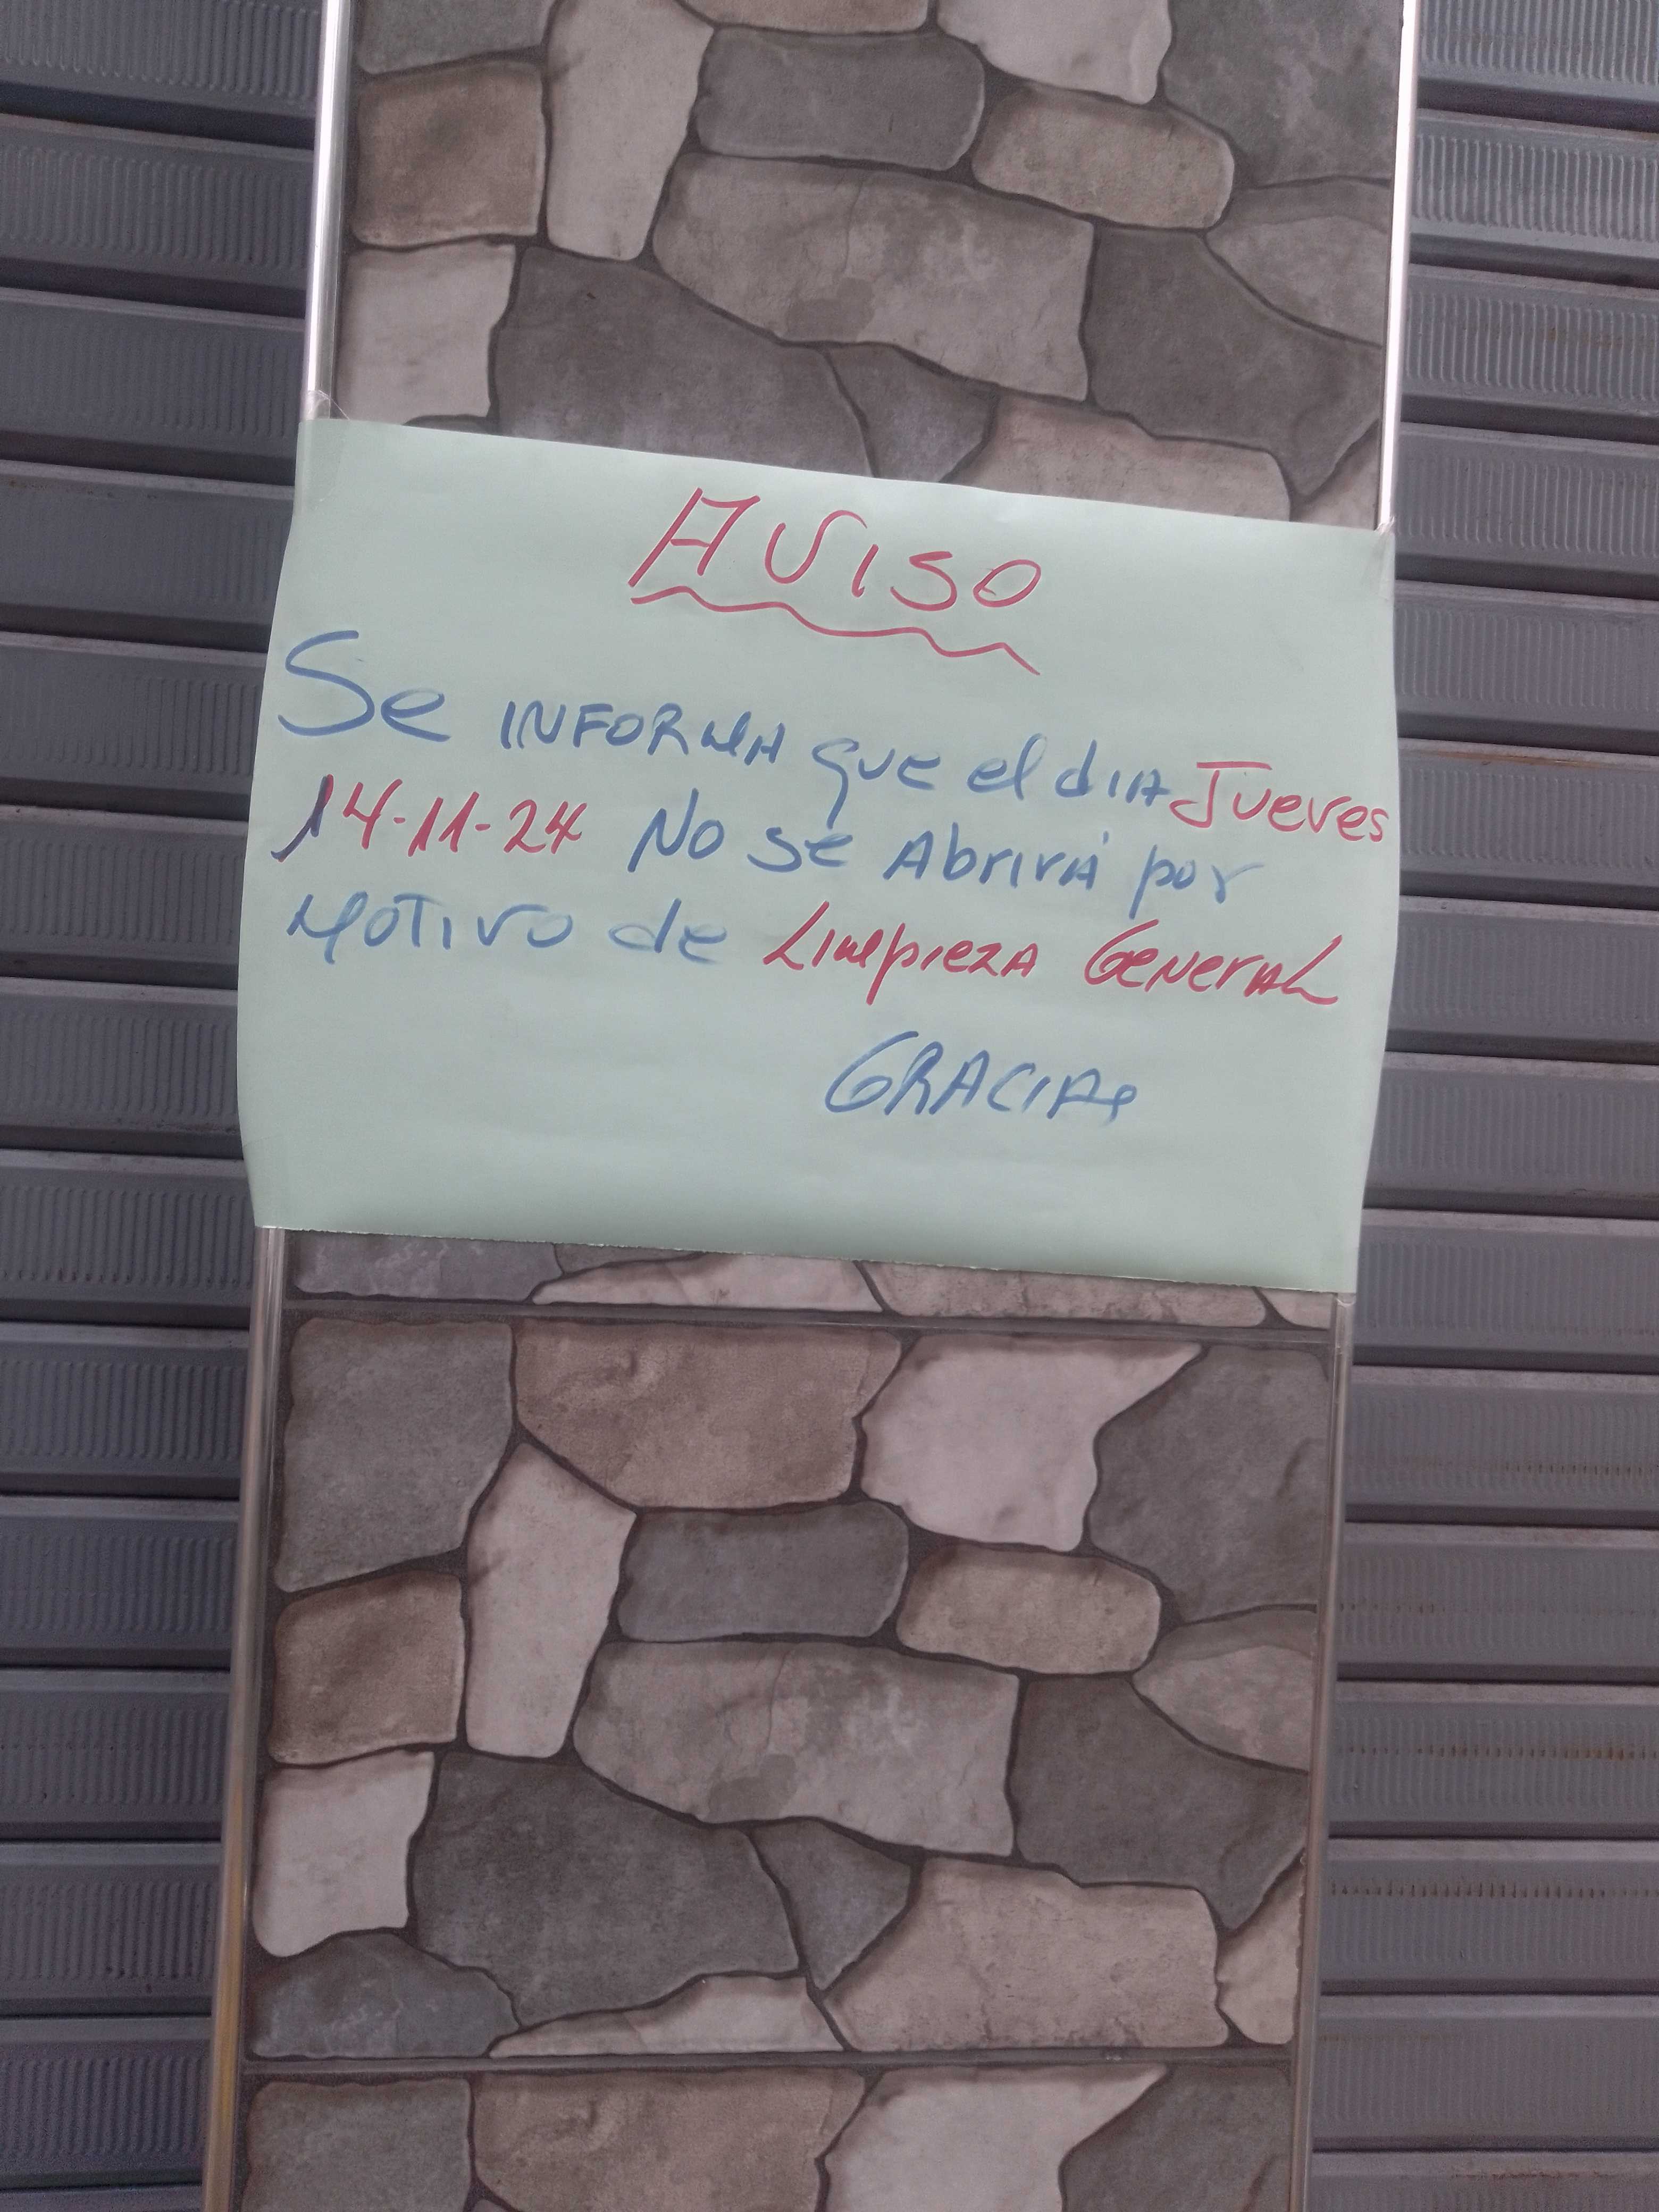 AVISO
Se INFORMA que el dia Jueves
14-11-24 No se Abrirá por
MOTIVO de Limpieza General
GRACIAS